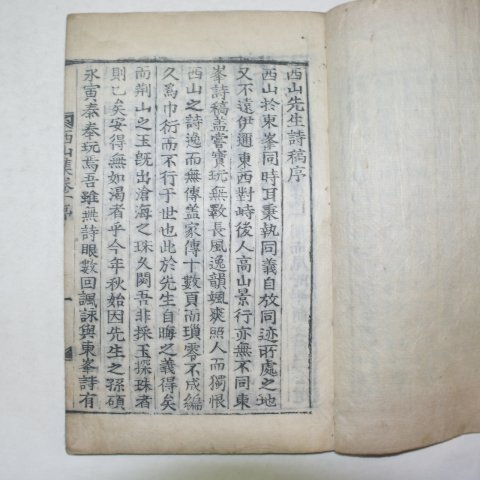 西山先生詩稿序
西山於東峯同時耳秉執同義自放同迹所處之地
又不遠伊邇東西對峙後人高山景行亦無不同東
峯詩稿盖嘗寶玩無斁長風逸韻颯爽照人而獨恨
西山之詩逸而無傳盖家傳十數頁而瑣零不成編
久爲巾衍而不行于世也此於先生自晦之義得矣
而荆山之玉旣出滄海之珠久閟吾非採玉探珠者
則已矣安得無如渴者乎今年秋始因先生之孫碩
永寅泰奉玩焉吾雖無詩眼數回諷詠與東峯詩有
西山集卷一
一